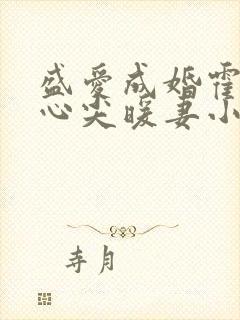 盛爱成婚霍
心尖暖妻小
寺月